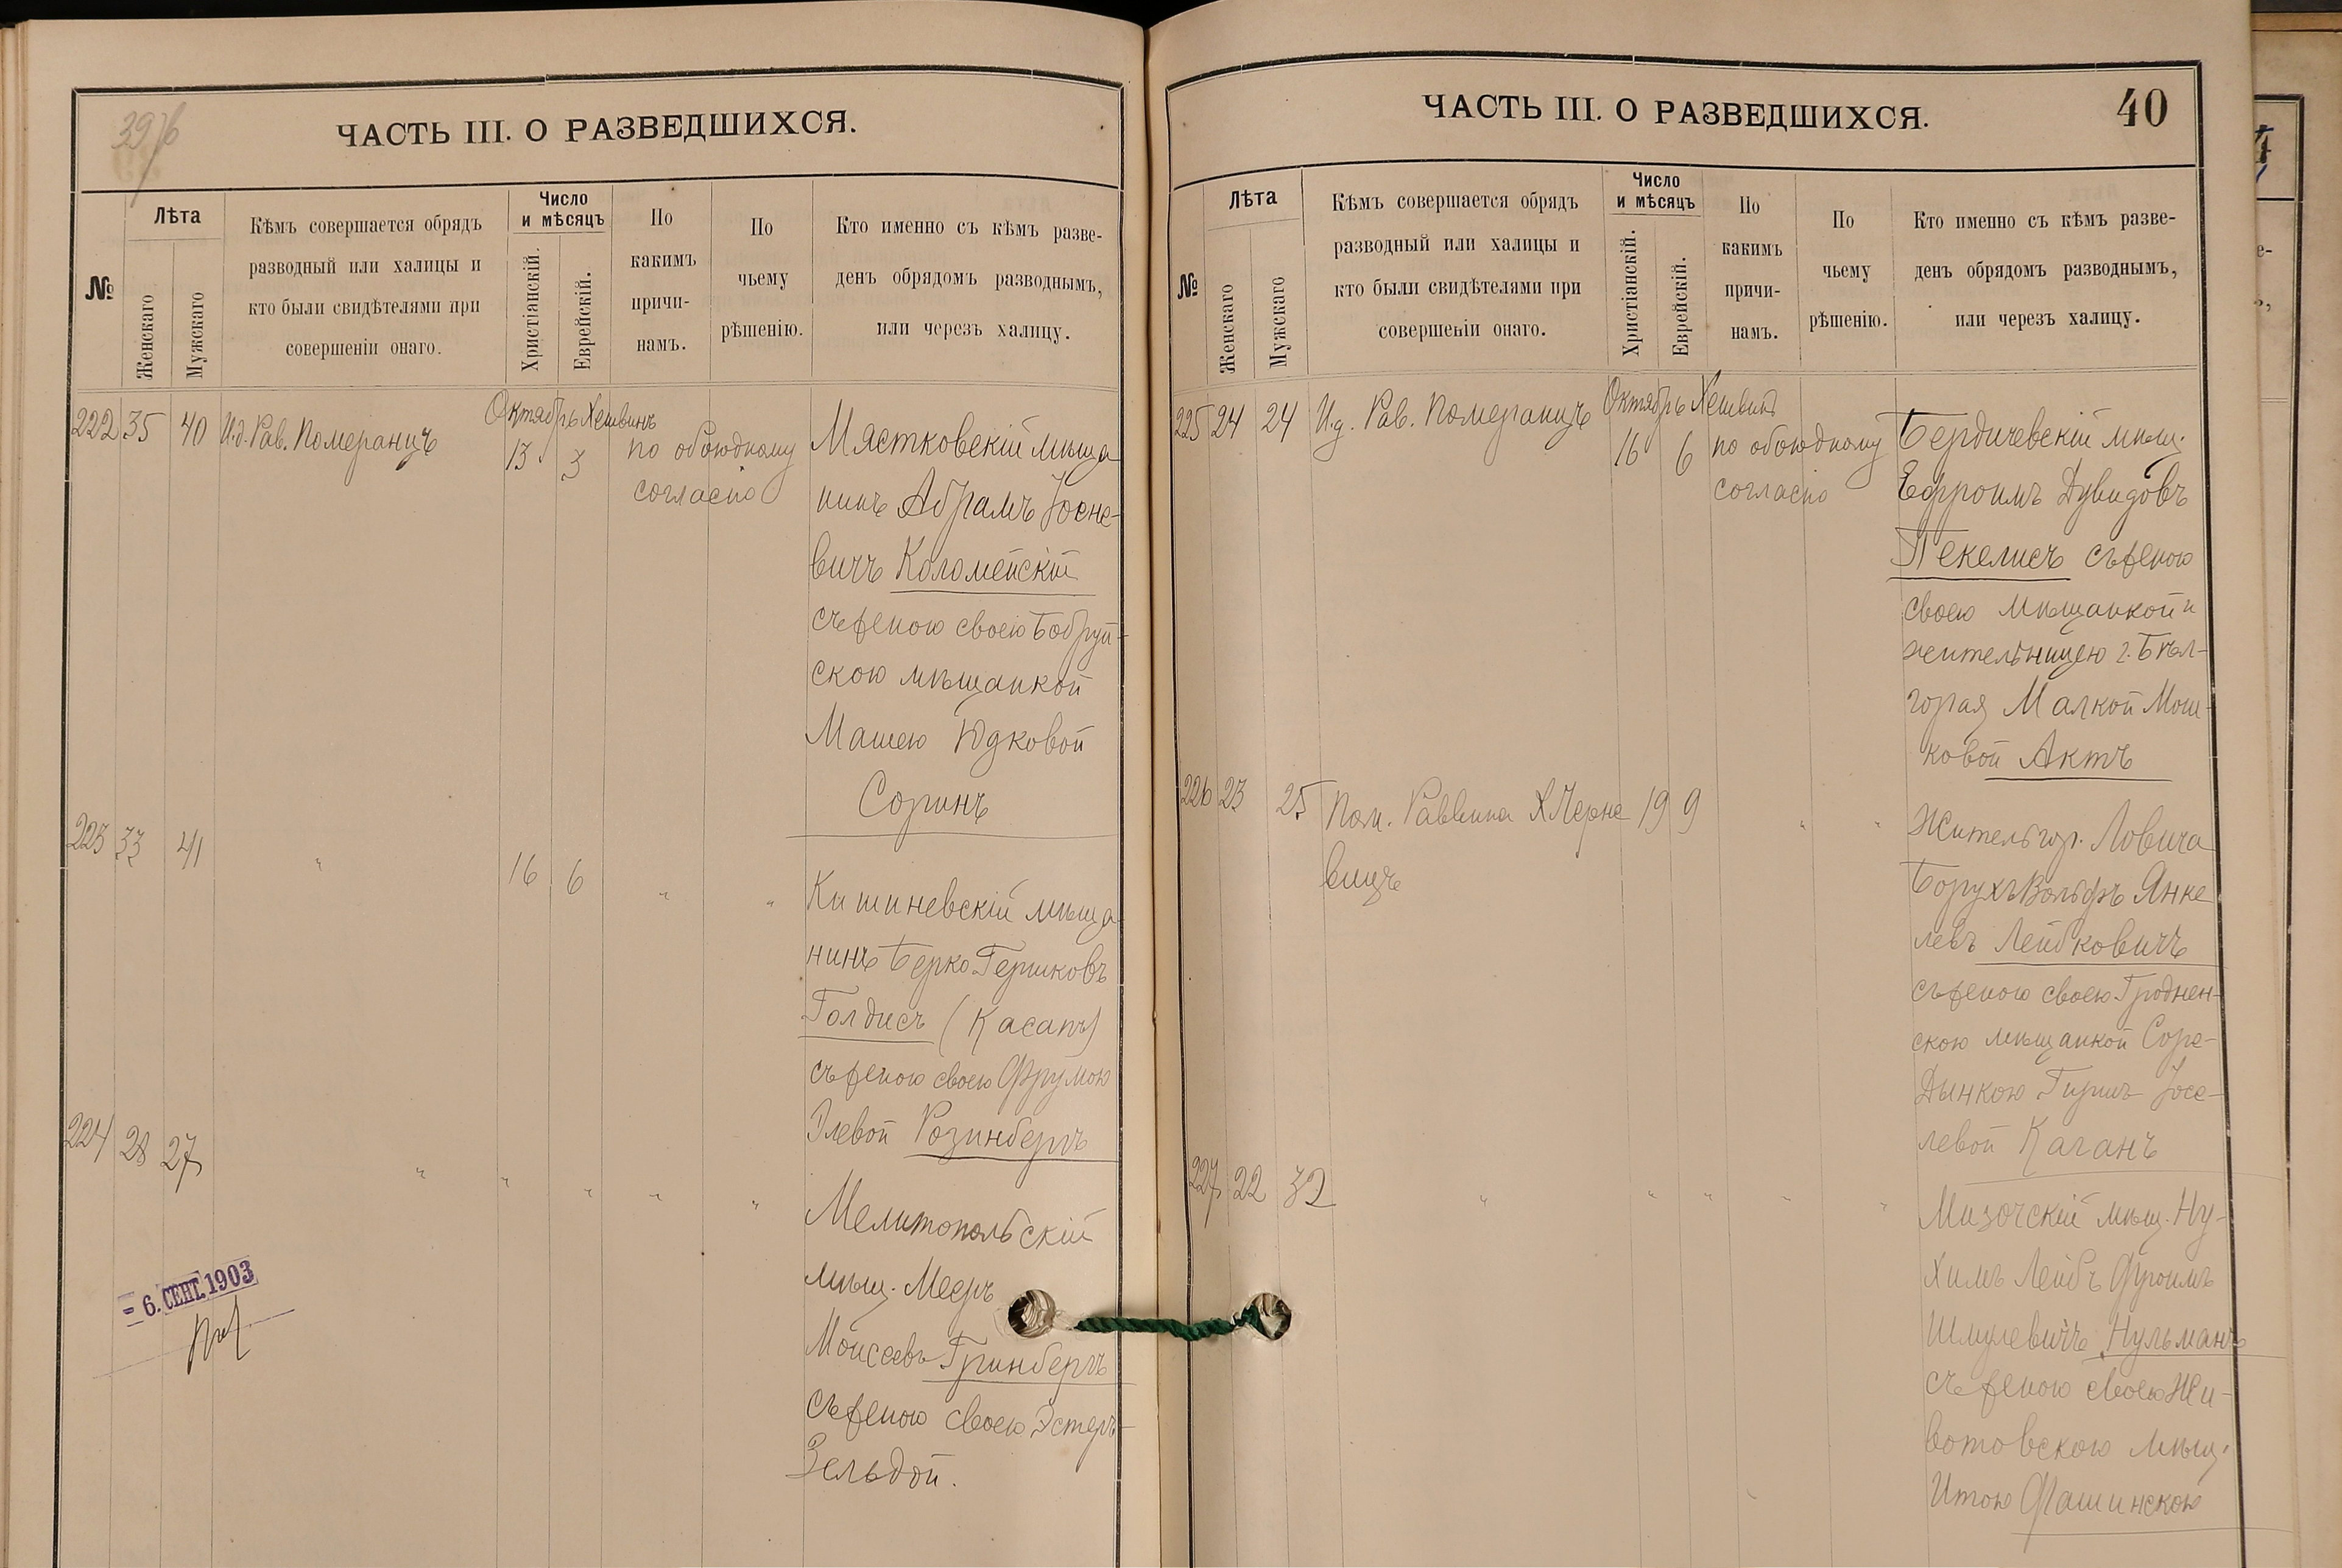 39/б
ЧАСТЬ III. О РАЗВЕДШИХСЯ.
№
Лѣта
Женскаго
Мужскаго
Кѣмъ совершается обрядъ
разводный или халицы и
кто были свидѣтелями при
совершеніи онаго.
Число
и мѣсяцъ
Христіанскій.
Еврейскій.
По
какимъ
причи-
намъ.
По
чьему
рѣшенію.
Кто именно съ кѣмъ разве-
денъ обрядомъ разводнымъ,
или черезъ халицу.
222 35 40 И.д. Рав. Померанцъ
Октябрь Хешвинъ
13 3
по обоюдному
согласію
Мястковскій мѣща
нинъ Абрамъ Іосие-
вичъ Коломейскій
съ женою своею Бобруй-
скою мѣщанкой
Машею Юдковой
Соринъ
223 33 41 " 16 6 " "
Кишиневскій мѣща
нинъ Берко Гершковъ
Голдисъ (Касапъ)
съ женою своею Фрумою
Элевой Розинбергъ
224 28 27 " " " " "
Мелитопольскій
мѣщ. Мееръ
Моисеевъ Гринбергъ
съ женою своею Эстеръ-
Зельдой.
= 6. СЕНТ. 1903
ЧАСТЬ III. О РАЗВЕДШИХСЯ.
40
№
Лѣта
Женскаго
Мужскаго
Кѣмъ совершается обрядъ
разводный или халицы и
кто были свидѣтелями при
совершеніи онаго.
Число
и мѣсяцъ
Христіанскій.
Еврейскій.
По
какимъ
причи-
намъ.
По
чьему
рѣшенію.
Кто именно съ кѣмъ разве-
денъ обрядомъ разводнымъ,
или черезъ халицу.
225 24 24 И.д. Рав. Померанцъ
Октябрь Хешвинъ
16 6
по обоюдному
согласію
Бердичевскій мѣщ.
Ефроимъ Дувидовъ
Пекелисъ съ женою
своею мѣщанкой и
жительницею г. Бѣл-
горая Малкой Мош-
ковой Актъ
226 23 25 Пом. Раввина Х Черно 19 9 " "
вицъ
Житель гор. Ловича
Борухъ Вольфъ Янке
левъ Лейбковичъ
съ женою своею Гроднен-
скою мѣщанкой Соре-
Дынкою Гиршъ Іосе-
левой Каганъ
227 22 32 " " " " "
Мизочскій мѣщ. Ну-
химъ Лейбъ Фроимъ
Шмулевичъ Нульманъ
съ женою своею Жи-
вотовскою мѣщ.
Итою Фашинскою